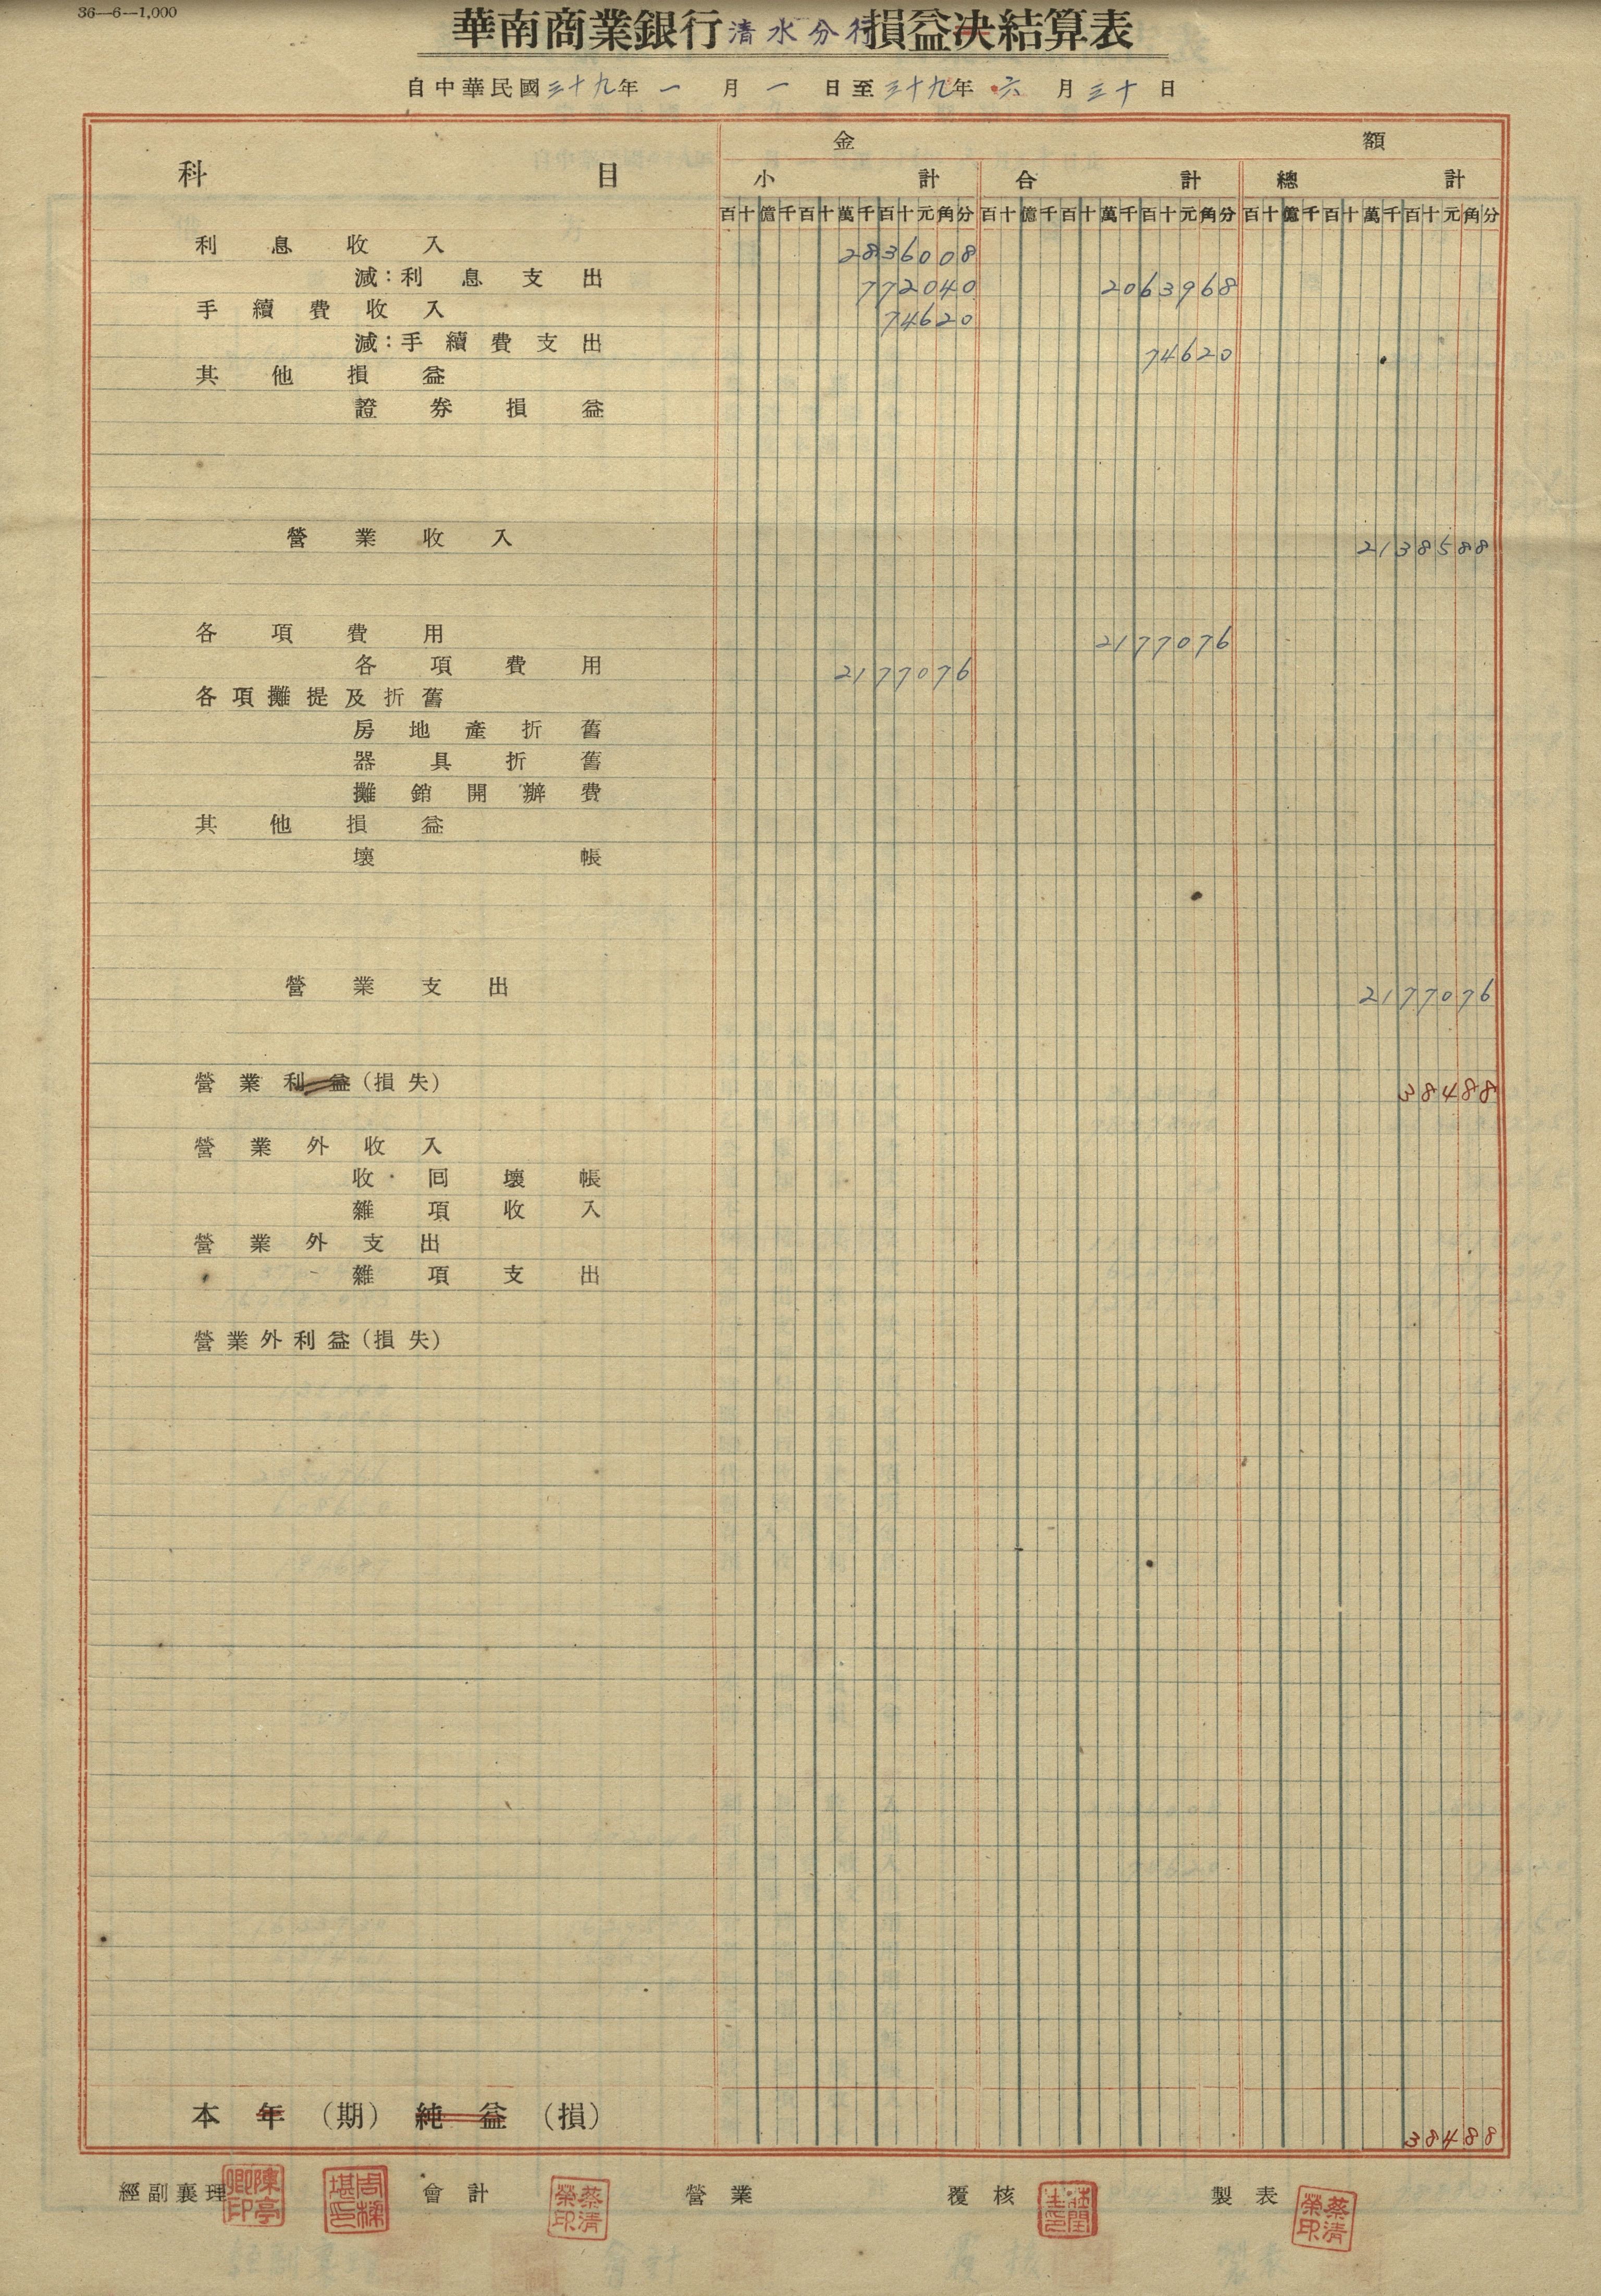 36—6—1,000
華南商業銀行清水分行損益決結算表
自中華民國三十九年一月一日至三十九年六月三十日
科目 金額
小計 合計 總計
百十億千百十萬千百十元角分 百十億千百十萬千百十元角分 百十億千百十萬千百十元角分
利息收入 2836008
減:利息支出 772040 2063968
手續費收入 74620
減:手續費支出 74620
其他損益
證券損益
營業收入 2138588
各項費用 2177076
各項費用 2177076
各項攤提及折舊
房地產折舊
器具折舊
攤銷開辦費
其他損益
壞帳
營業支出 2177076
營業利益(損失) 38488
營業外收入
收回壞帳
雜項收入
營業外支出
雜項支出
營業外利益(損失)
本年(期)純益(損) 38488
經副襄理 陳亭卿印 會計 蔡清榮印 營業 覆核 製表 蔡清榮印